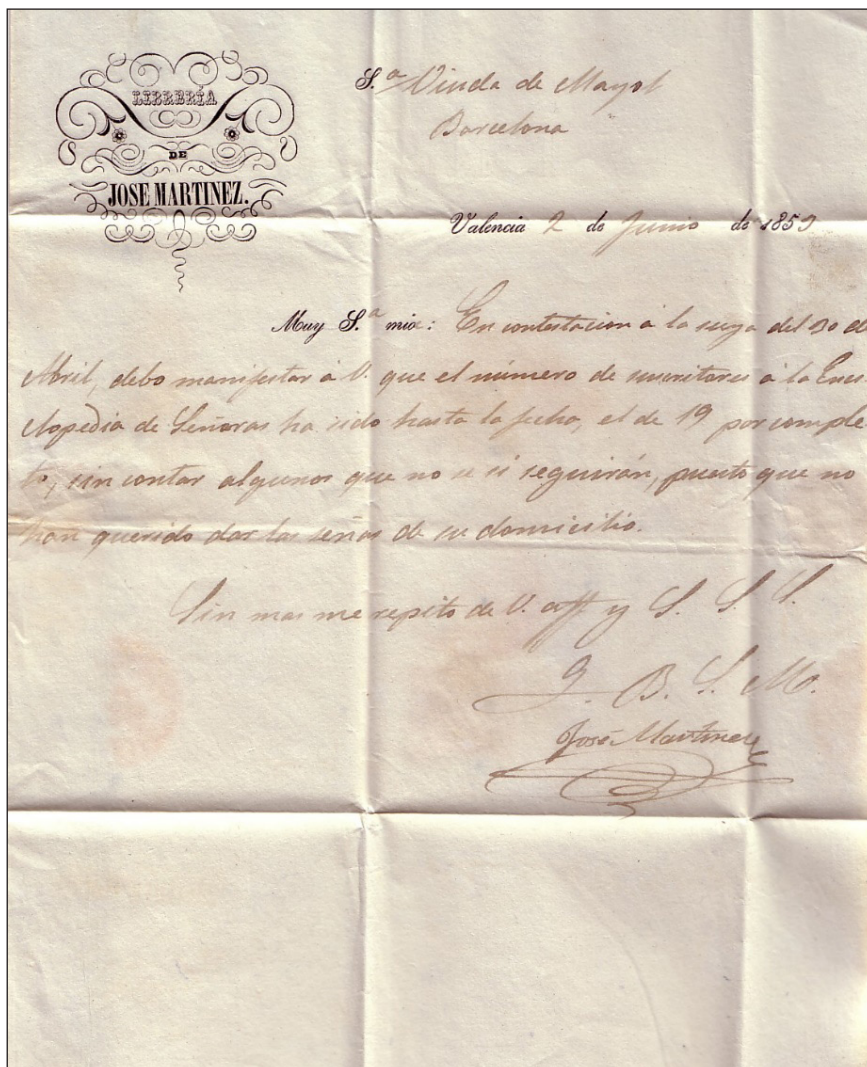 LIBRERÍA
DE
JOSE MARTINEZ.
S.ª Viuda de Mayol
Barcelona
Valencia 2 de Junio de 1859
Muy S.ª mia: En contestacion á la suya del 30 de
Abril, debo manifestar á V. que el número de suscritores á la Enci-
clopedia de Señoras ha sido hasta la fecha, el de 19 por comple-
to, sin contar algunos que no se si seguirán, puesto que no
han querido dar las señas de su domicilio.
Sin mas me repito de V. aff. y S. S. S.
Q. B. S. M.
José Martinez